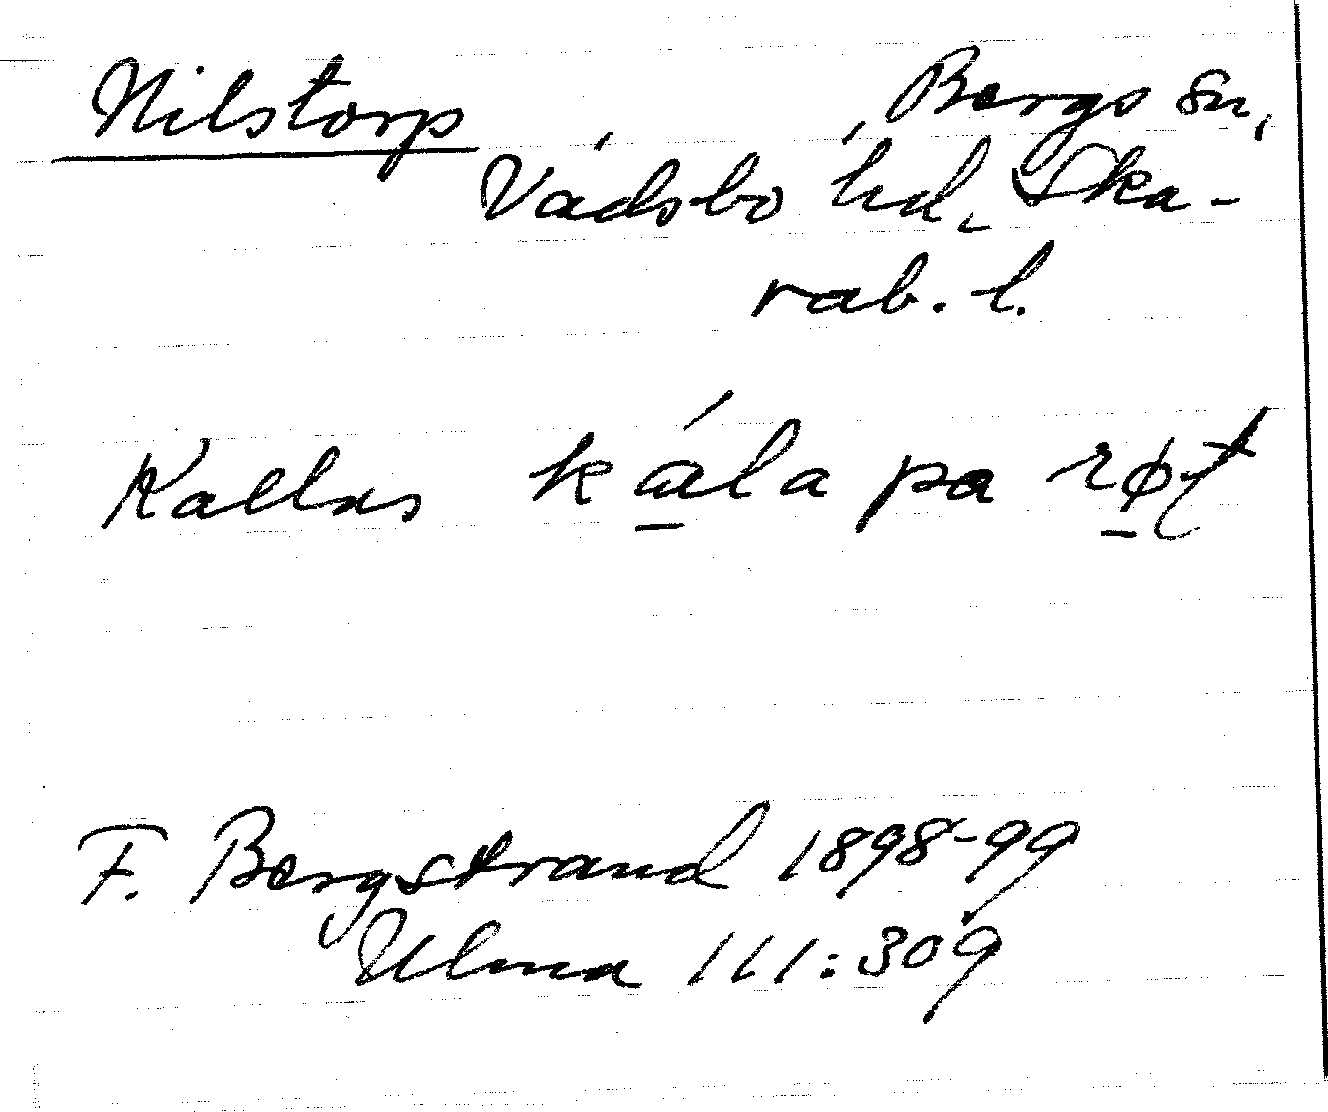 Nilstorp, Bergs sn,
Vadsbo hd, Ska-
rab. l.
Kallas kála pa røt
F. Bergstrand 1898-99
Ulma 111:309